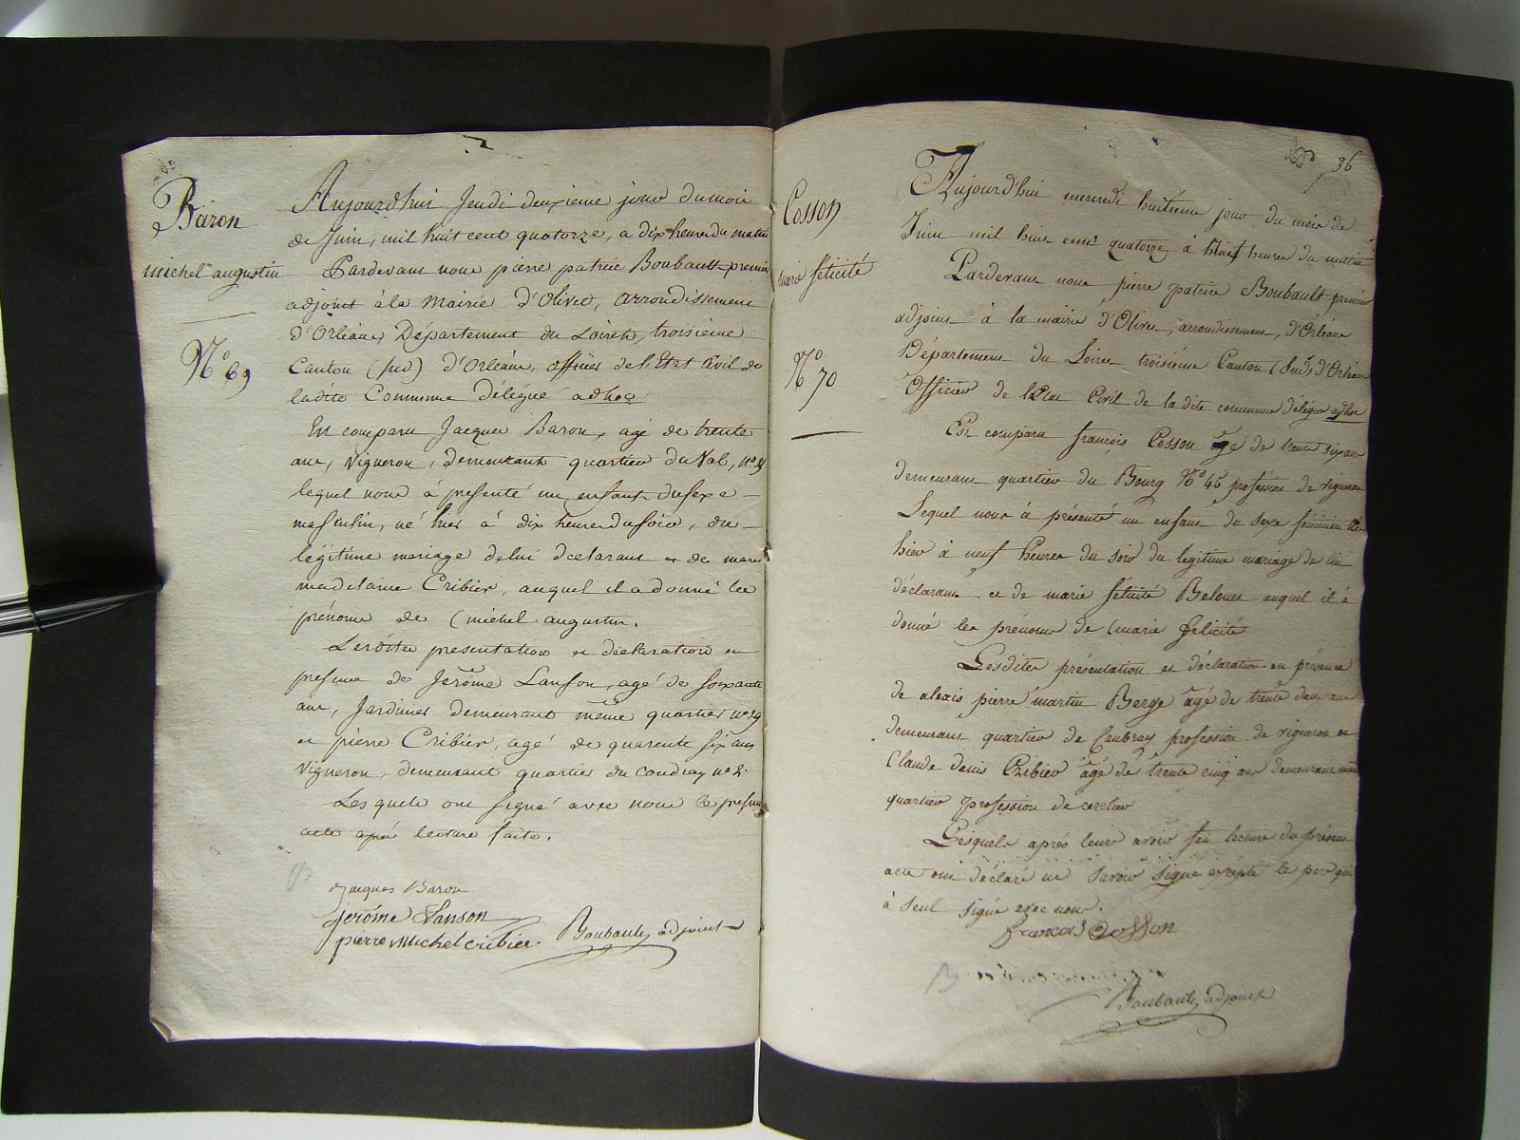 Baron
michel augustin
N.o 69
Aujourdhui Jeudi deuxieme jour du mois
de Juin, mil huit cent quatorze, a dix heures du matin
Pardevant nous pierre patrice Boubault premier
adjoint à la Mairie d'Olivet, arrondissement
d'Orléans, Département du Loiret, troisieme
Canton (sud) d'Orléans, officier de l'Etat Civil de
ladite Commune délégué adhoc
Est comparu Jacques Baron, agé de trente
ans, vigneron, demeurant quartier du Val, n.o
lequel nous à présenté un enfant du sexe
masculin, né hier à dix heures du soir, du
légitime mariage de lui déclarant et de marie
madelaine Cribier, auquel il a donné les
prénoms de michel augustin.
Lesdites presentation et déclaration en
presence de Jerôme Lanson, agé de soixante
ans, Jardinier demeurant même quartier n.o 29
et pierre Cribier, agé de quarente six ans
Vigneron, demeurant quartier du coudray n.o 2.
Lesquels ont signé avec nous le present
acte après lecture faite.
Jacques Baron
jerôme Lanson
pierre michel cribier. Boubault, adjoint
36
Cosson
marie félicité
N.o 70
Aujourd'hui mercredi huitieme jour du mois de
Juin mil huit cent quatorze à heures du matin
Pardevant nous pierre patrice Boubault premier
adjoint à la mairie d'Olivet, arrondissement, d'Orléans
Département du Loiret troisième Canton (Sud) d'Orléans
Officier de l'Etat Civil de la dite commune délégué adhoc
Est comparu françois Cosson agé de trente six ans
demeurant quartier du Bourg N.o 45 profession de vigneron
Lequel nous à présenté un enfant du sexe féminin né
hier à neuf heures du soir du legitime mariage de lui
déclarant et de marie félicité Belouet auquel il à
donné les prénoms de marie félicité
Lesdites présentation et déclaration en présence
de alexis pierre martin Berge agé de trente deux ans
demeurant quartier de Caubray profession de vigneron et
Claude denis Cribier agé de trente cinq ans demeurant même
quartier profession de cerclier
Lesquels après leurs avoir fait lecture du présent
acte ont déclaré ne savoir signé excepté le père qui
à seul signé avec nous.
francois Cosson
Boubault, adjoint